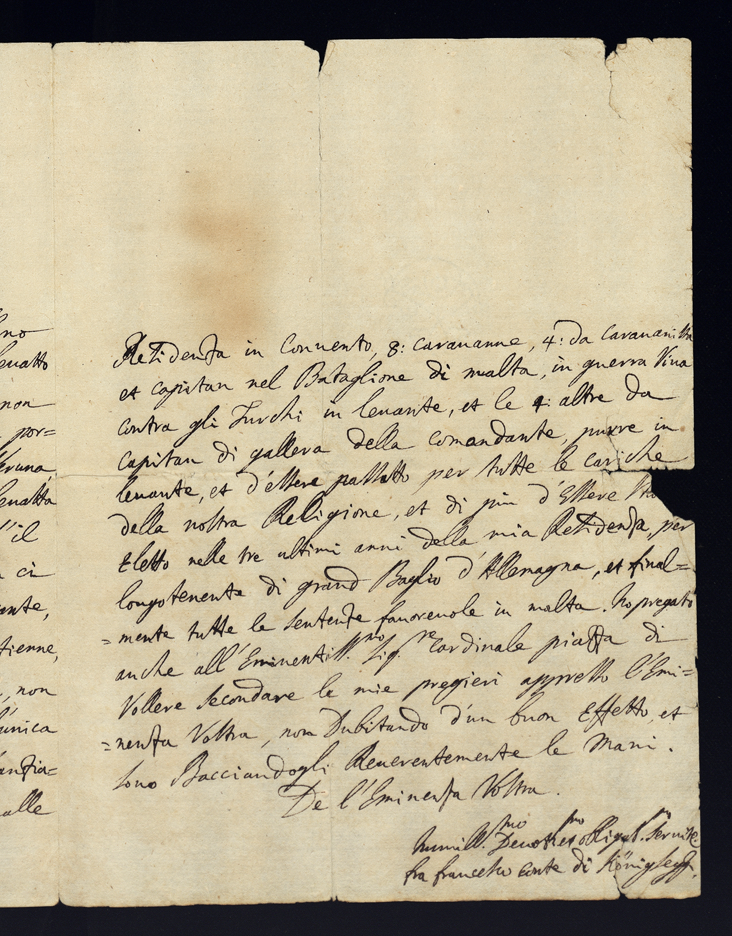 no
leuatto
non
por=
l'il
ci
ante,
non
unica
alle
Residenza in Conuento, 8: carauanne, 4: da
et capitan nel Bataglione di malta, in guerra Viua
contra gli Turchi in leuante, et le 4: altre da
capitan di gallera della comandante, purre in
leuante, et d'essere passatto per tutte le cariche
della nostra Religione, et di piu d'Essere
Eletto nelle tre ultimi anni della mia Residenza, per
longotenente di grand Baglio d'Allemagna, et final=
=mente tutte le sentenze fauoreuole in malta. ho pregato
anche all'Eminentiss.mo Sig.re Cardinale piazza di
Vollere secondare le mie pregieri appresso l'Emi=
=nenza Vostra, non Dubitando d'un buon Effetto, et
sono Bacciandogli Reuerentemente le Mani.
De l'Eminenza Vostra.
humill.mo Deuotiss.mo obligat.mo
fra francesco conte di Königsegg.